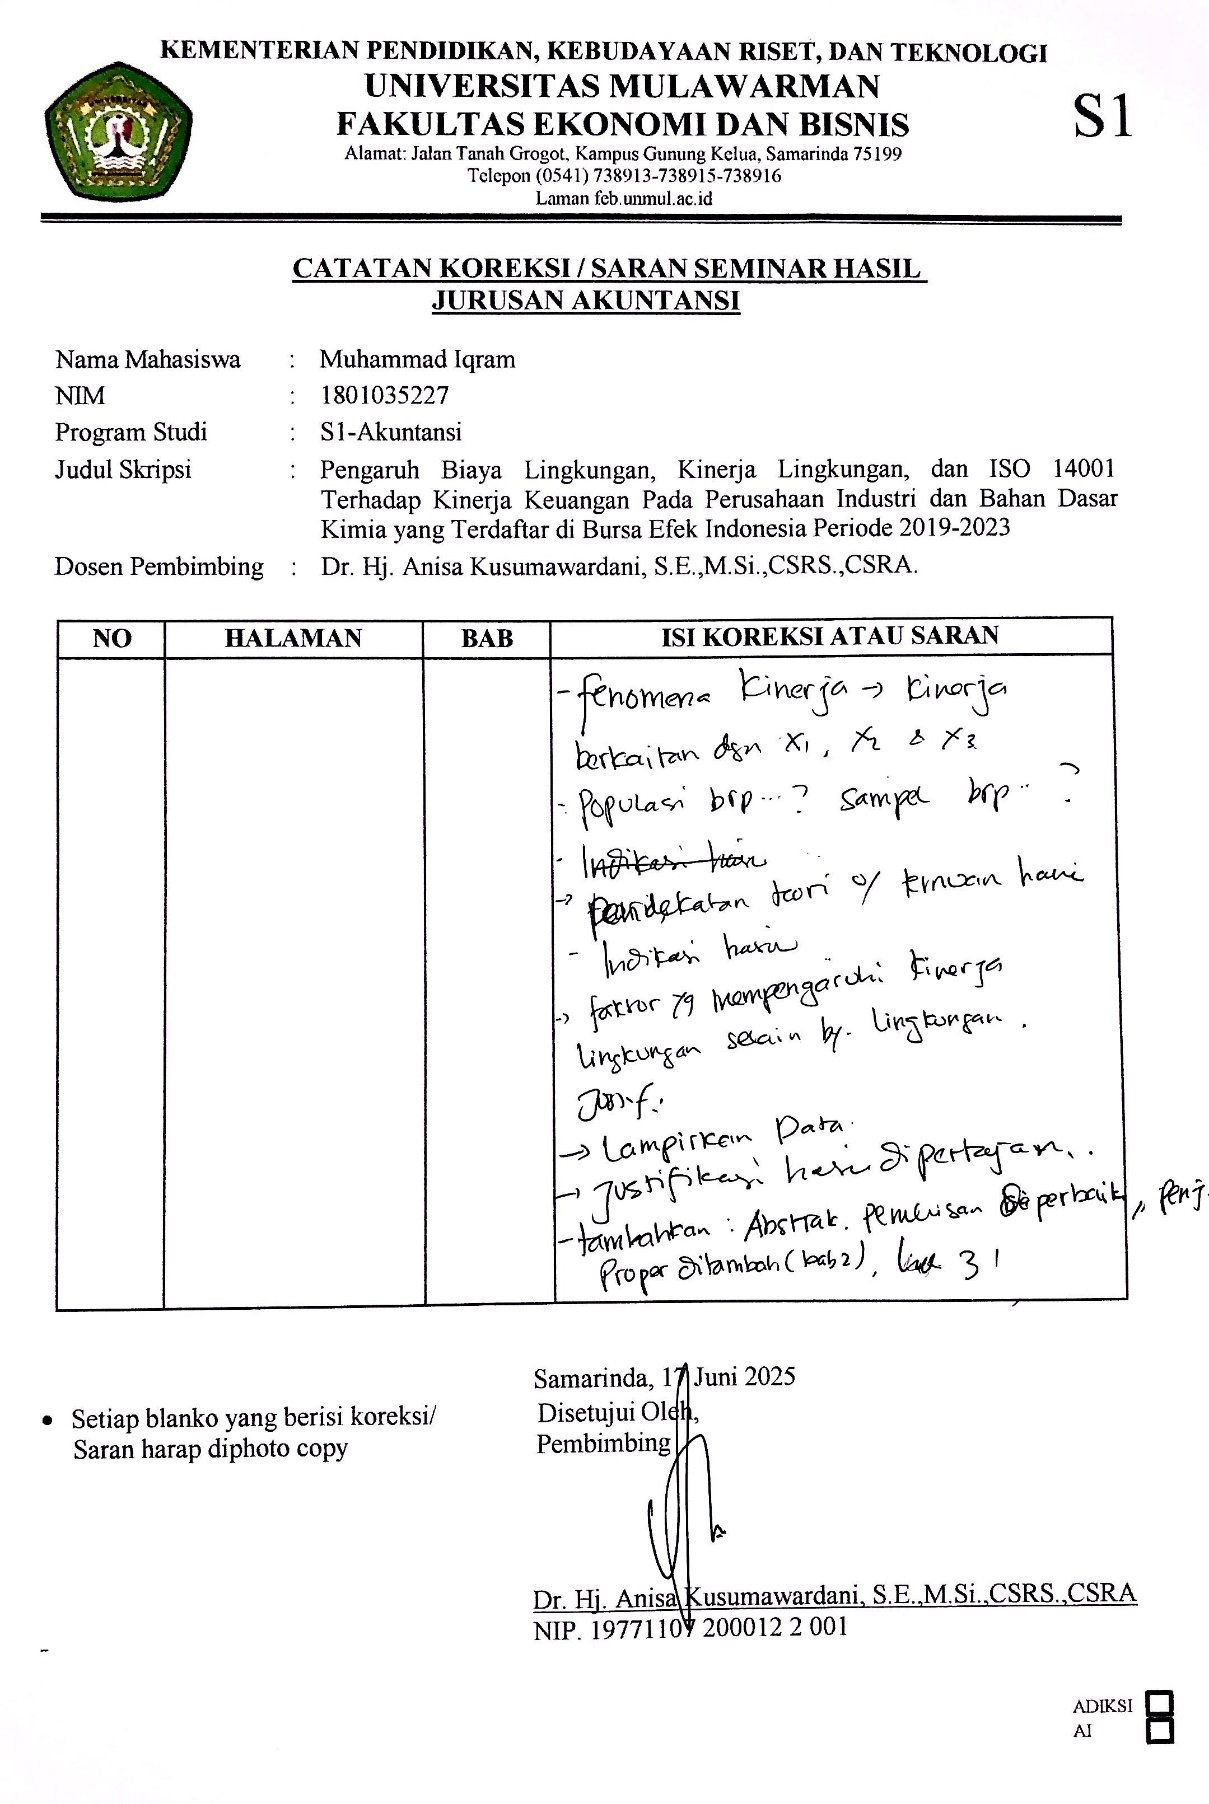 KEMENTERIAN PENDIDIKAN, KEBUDAYAAN RISET, DAN TEKNOLOGI
UNIVERSITAS MULAWARMAN
FAKULTAS EKONOMI DAN BISNIS
S1
Alamat: Jalan Tanah Grogot, Kampus Gunung Kelua, Samarinda 75199
Telepon (0541) 738913-738915-738916
Laman feb.unmul.ac.id
CATATAN KOREKSI / SARAN SEMINAR HASIL
JURUSAN AKUNTANSI
Nama Mahasiswa : Muhammad Iqram
NIM : 1801035227
Program Studi : S1-Akuntansi
Judul Skripsi : Pengaruh Biaya Lingkungan, Kinerja Lingkungan, dan ISO 14001
Terhadap Kinerja Keuangan Pada Perusahaan Industri dan Bahan Dasar
Kimia yang Terdaftar di Bursa Efek Indonesia Periode 2019-2023
Dosen Pembimbing : Dr. Hj. Anisa Kusumawardani, S.E.,M.Si.,CSRS.,CSRA.
NO HALAMAN BAB ISI KOREKSI ATAU SARAN
- fenomena kinerja → kinerja
berkaitan dgn X1, X2 & X3
- Populasi brp...? sampel brp.. ?
- Indikasi hasil
→ Pendekatan teori o/ temuan hasil
- Indikasi hasil
→ faktor yg mempengaruhi kinerja
lingkungan selain by. lingkungan.
→ Lampirkan Data.
→ Justifikasi hasil dipertajam..
- tambahkan : Abstrak. penulisan diperbaiki, penj.
Proper ditambah (bab 2), bab 3
Samarinda, 17 Juni 2025
Disetujui Oleh,
Pembimbing
• Setiap blanko yang berisi koreksi/
Saran harap diphoto copy
Dr. Hj. Anisa Kusumawardani, S.E.,M.Si.,CSRS.,CSRA
NIP. 19771107 200012 2 001
ADIKSI
AI